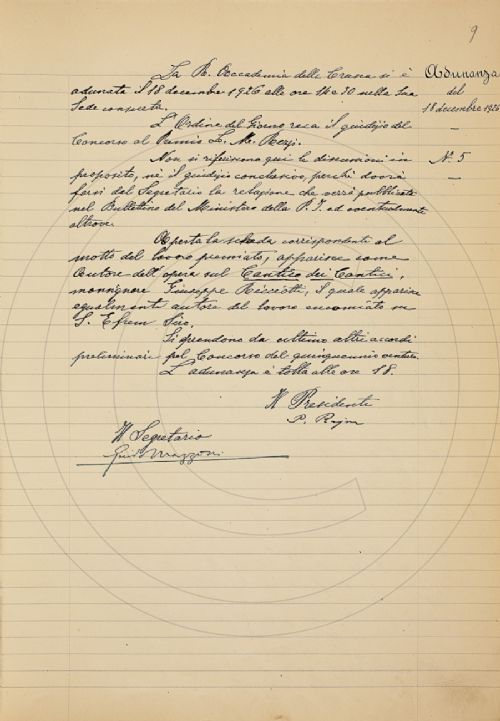 9
Adunanza
del
18 decembre 1926
—
N.º 5
—
La R. Accademia della Crusca si è
adunata il 18 decembre 1926 alle ore 16 e 30 nella sua
Sede consueta.
L'Ordine del Giorno reca il giudizio del
Concorso al Premio L. M. Rezzi.
Non si riferiscono qui le discussioni in
proposito, nè il giudizio conclusivo, perchè dovrà
farsi dal Segretario la relazione che verrà pubblicata
nel Bullettino del Ministero della P. I. ed eventualmente
altrove.
Aperta la scheda corrispondente al
motto del lavoro premiato, apparisce come
autore dell'opera sul Cantico dei Cantici,
monsignore Giuseppe Ricciotti, il quale apparisce
egualmente autore del lavoro encomiato su
S. Efrem Siro.
Si prendono da ultimo altri accordi
preliminari pel Concorso del quinquennio venturo.
L'adunanza è tolta alle ore 18.
Il Presidente
P. Rajna
Il Segretario
Guido Mazzoni